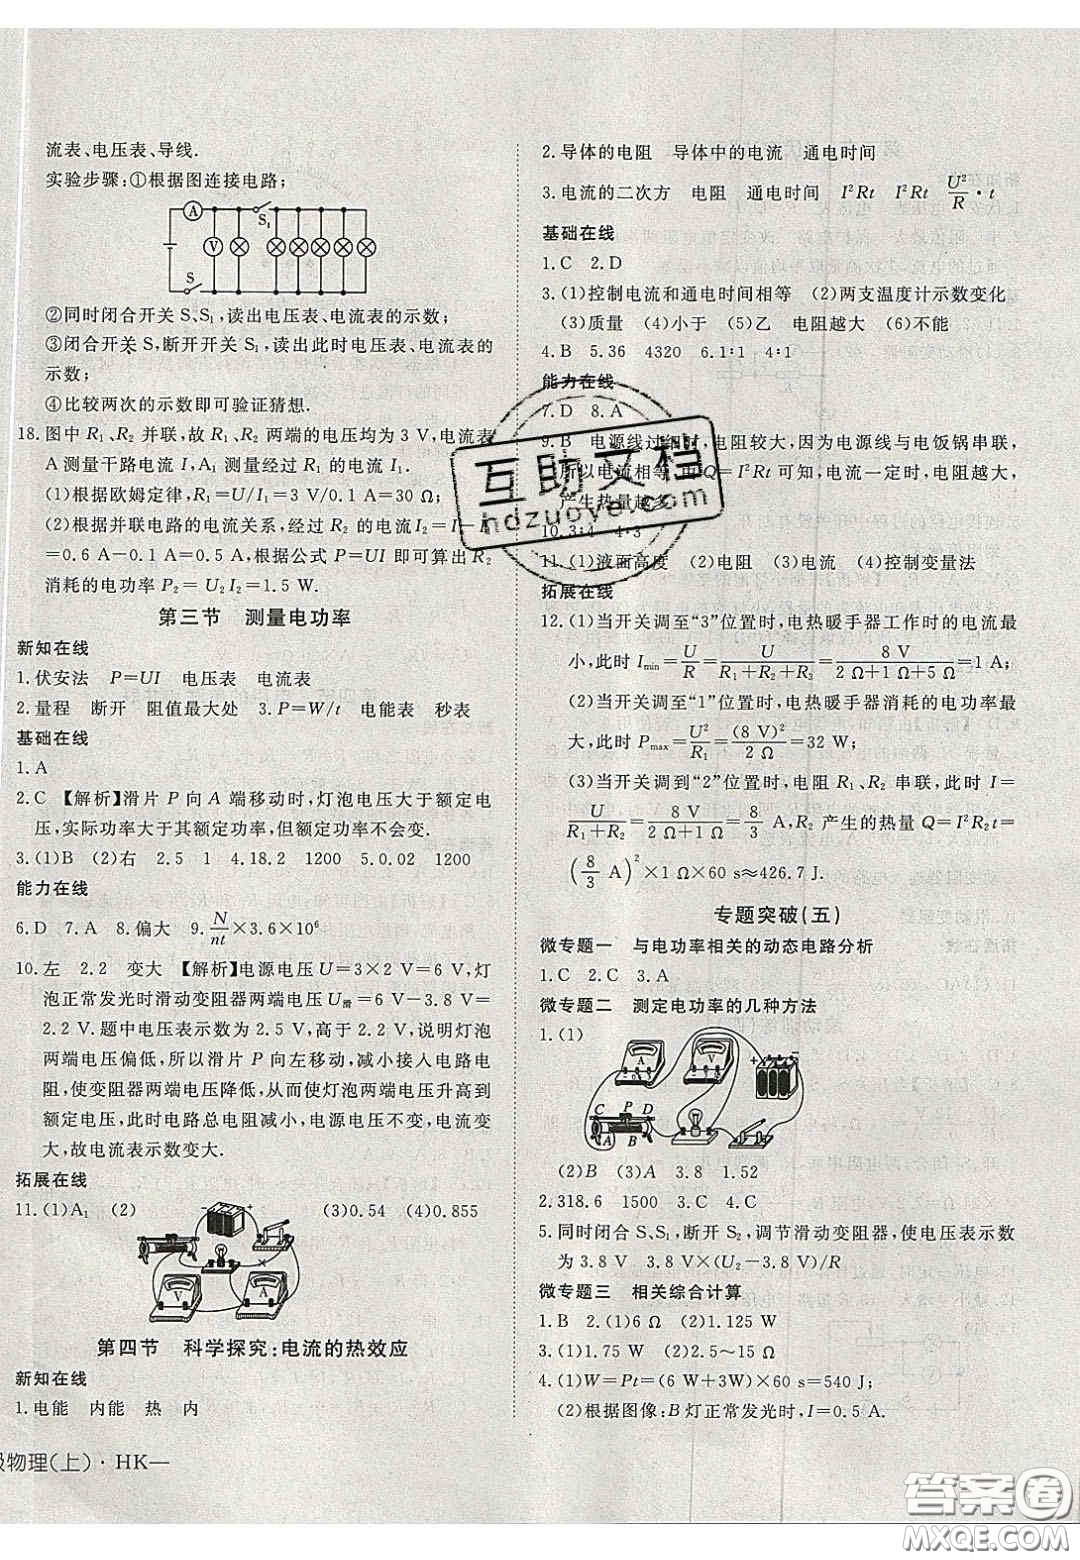 流表、电压表、导线.
实验步骤:①根据图连接电路;
A
S₁
V
S
②同时闭合开关 S、S₁,读出电压表、电流表的示数;
③闭合开关 S,断开开关 S₁,读出此时电压表、电流表的
示数;
④比较两次的示数即可验证猜想.
18.图中 R₁、R₂ 并联,故 R₁、R₂ 两端的电压均为 3 V,电流表
A 测量干路电流 I,A₁ 测量经过 R₁ 的电流 I₁.
(1)根据欧姆定律,R₁=U/I₁=3 V/0.1 A=30 Ω;
(2)根据并联电路的电流关系,经过 R₂ 的电流 I₂=I-I₁
=0.6 A-0.1 A=0.5 A,根据公式 P=UI 即可算出 R₂
消耗的电功率 P₂=U₂I₂=1.5 W.
第三节 测量电功率
新知在线
1.伏安法 P=UI 电压表 电流表
2.量程 断开 阻值最大处 3.P=W/t 电能表 秒表
基础在线
1.A
2.C 【解析】滑片 P 向 A 端移动时,灯泡电压大于额定电
压,实际功率大于其额定功率,但额定功率不会变.
3.(1)B (2)右 2.5 1 4.18.2 1200 5.0.02 1200
能力在线
6.D 7.A 8.偏大 9.N/nt×3.6×10⁶
10.左 2.2 变大 【解析】电源电压 U=3×2 V=6 V,灯
泡正常发光时滑动变阻器两端电压 U滑=6 V-3.8 V=
2.2 V.题中电压表示数为 2.5 V,高于 2.2 V,说明灯泡
两端电压偏低,所以滑片 P 向左移动,减小接入电路电
阻,使变阻器两端电压降低,从而使灯泡两端电压升高到
额定电压,此时电路总电阻减小,电源电压不变,电流变
大,故电流表示数变大.
拓展在线
11.(1)A₁ (2) (3)0.54 (4)0.855
V
A
第四节 科学探究:电流的热效应
新知在线
1.电能 内能 热 内
级物理(上)·HK—
2.导体的电阻 导体中的电流 通电时间
3.电流的二次方 电阻 通电时间 I²Rt I²Rt U²/R·t
基础在线
1.C 2.D
3.(1)控制电流和通电时间相等 (2)两支温度计示数变化
(3)质量 (4)小于 (5)乙 电阻越大 (6)不能
4.B 5.36 4320 6.1:1 4:1
能力在线
7.D 8.A
9.B 电源线过细时,电阻较大,因为电源线与电饭锅串联,
所以电流相等,由 Q=I²Rt 可知,电流一定时,电阻越大,
产生热量越多
10.3:4 4:3
11.(1)液面高度 (2)电阻 (3)电流 (4)控制变量法
拓展在线
12.(1)当开关调至“3”位置时,电热暖手器工作时的电流最
小,此时 Imin=U/R=U/(R₁+R₂+R₃)=8 V/(2 Ω+1 Ω+5 Ω)=1 A;
(2)当开关调至“1”位置时,电热暖手器消耗的电功率最
大,此时 Pmax=U²/R₁=(8 V)²/2 Ω=32 W;
(3)当开关调到“2”位置时,电阻 R₁、R₂ 串联,此时 I=
U/(R₁+R₂)=8 V/(2 Ω+1 Ω)=8/3 A,R₂ 产生的热量 Q=I²R₂t=
(8/3 A)²×1 Ω×60 s≈426.7 J.
专题突破(五)
微专题一 与电功率相关的动态电路分析
1.C 2.C 3.A
微专题二 测定电功率的几种方法
1.(1)
A
V
C P D
A B
(2)B (3)A 3.8 1.52
2.318.6 1500 3.C 4.C
5.同时闭合 S、S₁,断开 S₂,调节滑动变阻器,使电压表示数
为 3.8 V 3.8 V×(U₂-3.8 V)/R
微专题三 相关综合计算
1.B 2.(1)6 Ω (2)1.125 W
3.(1)1.75 W (2)2.5~15 Ω
4.(1)W=Pt=(6 W+3W)×60 s=540 J;
(2)根据图像:B 灯正常发光时,I=0.5 A.
互助文档
hdzuoye.com
答案圈
MXQE.COM